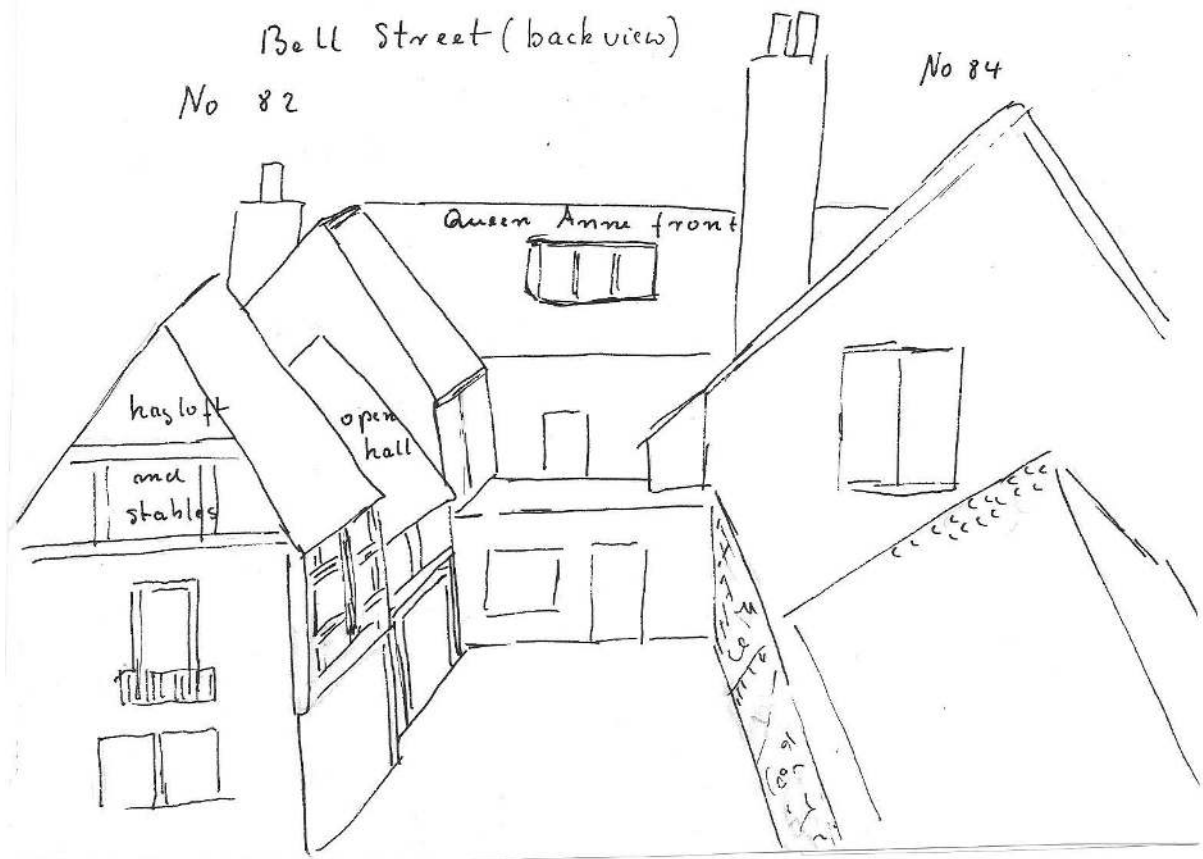 Bell Street (back view)
No 82
No 84
Queen Anne front
hayloft
and
stables
open
hall